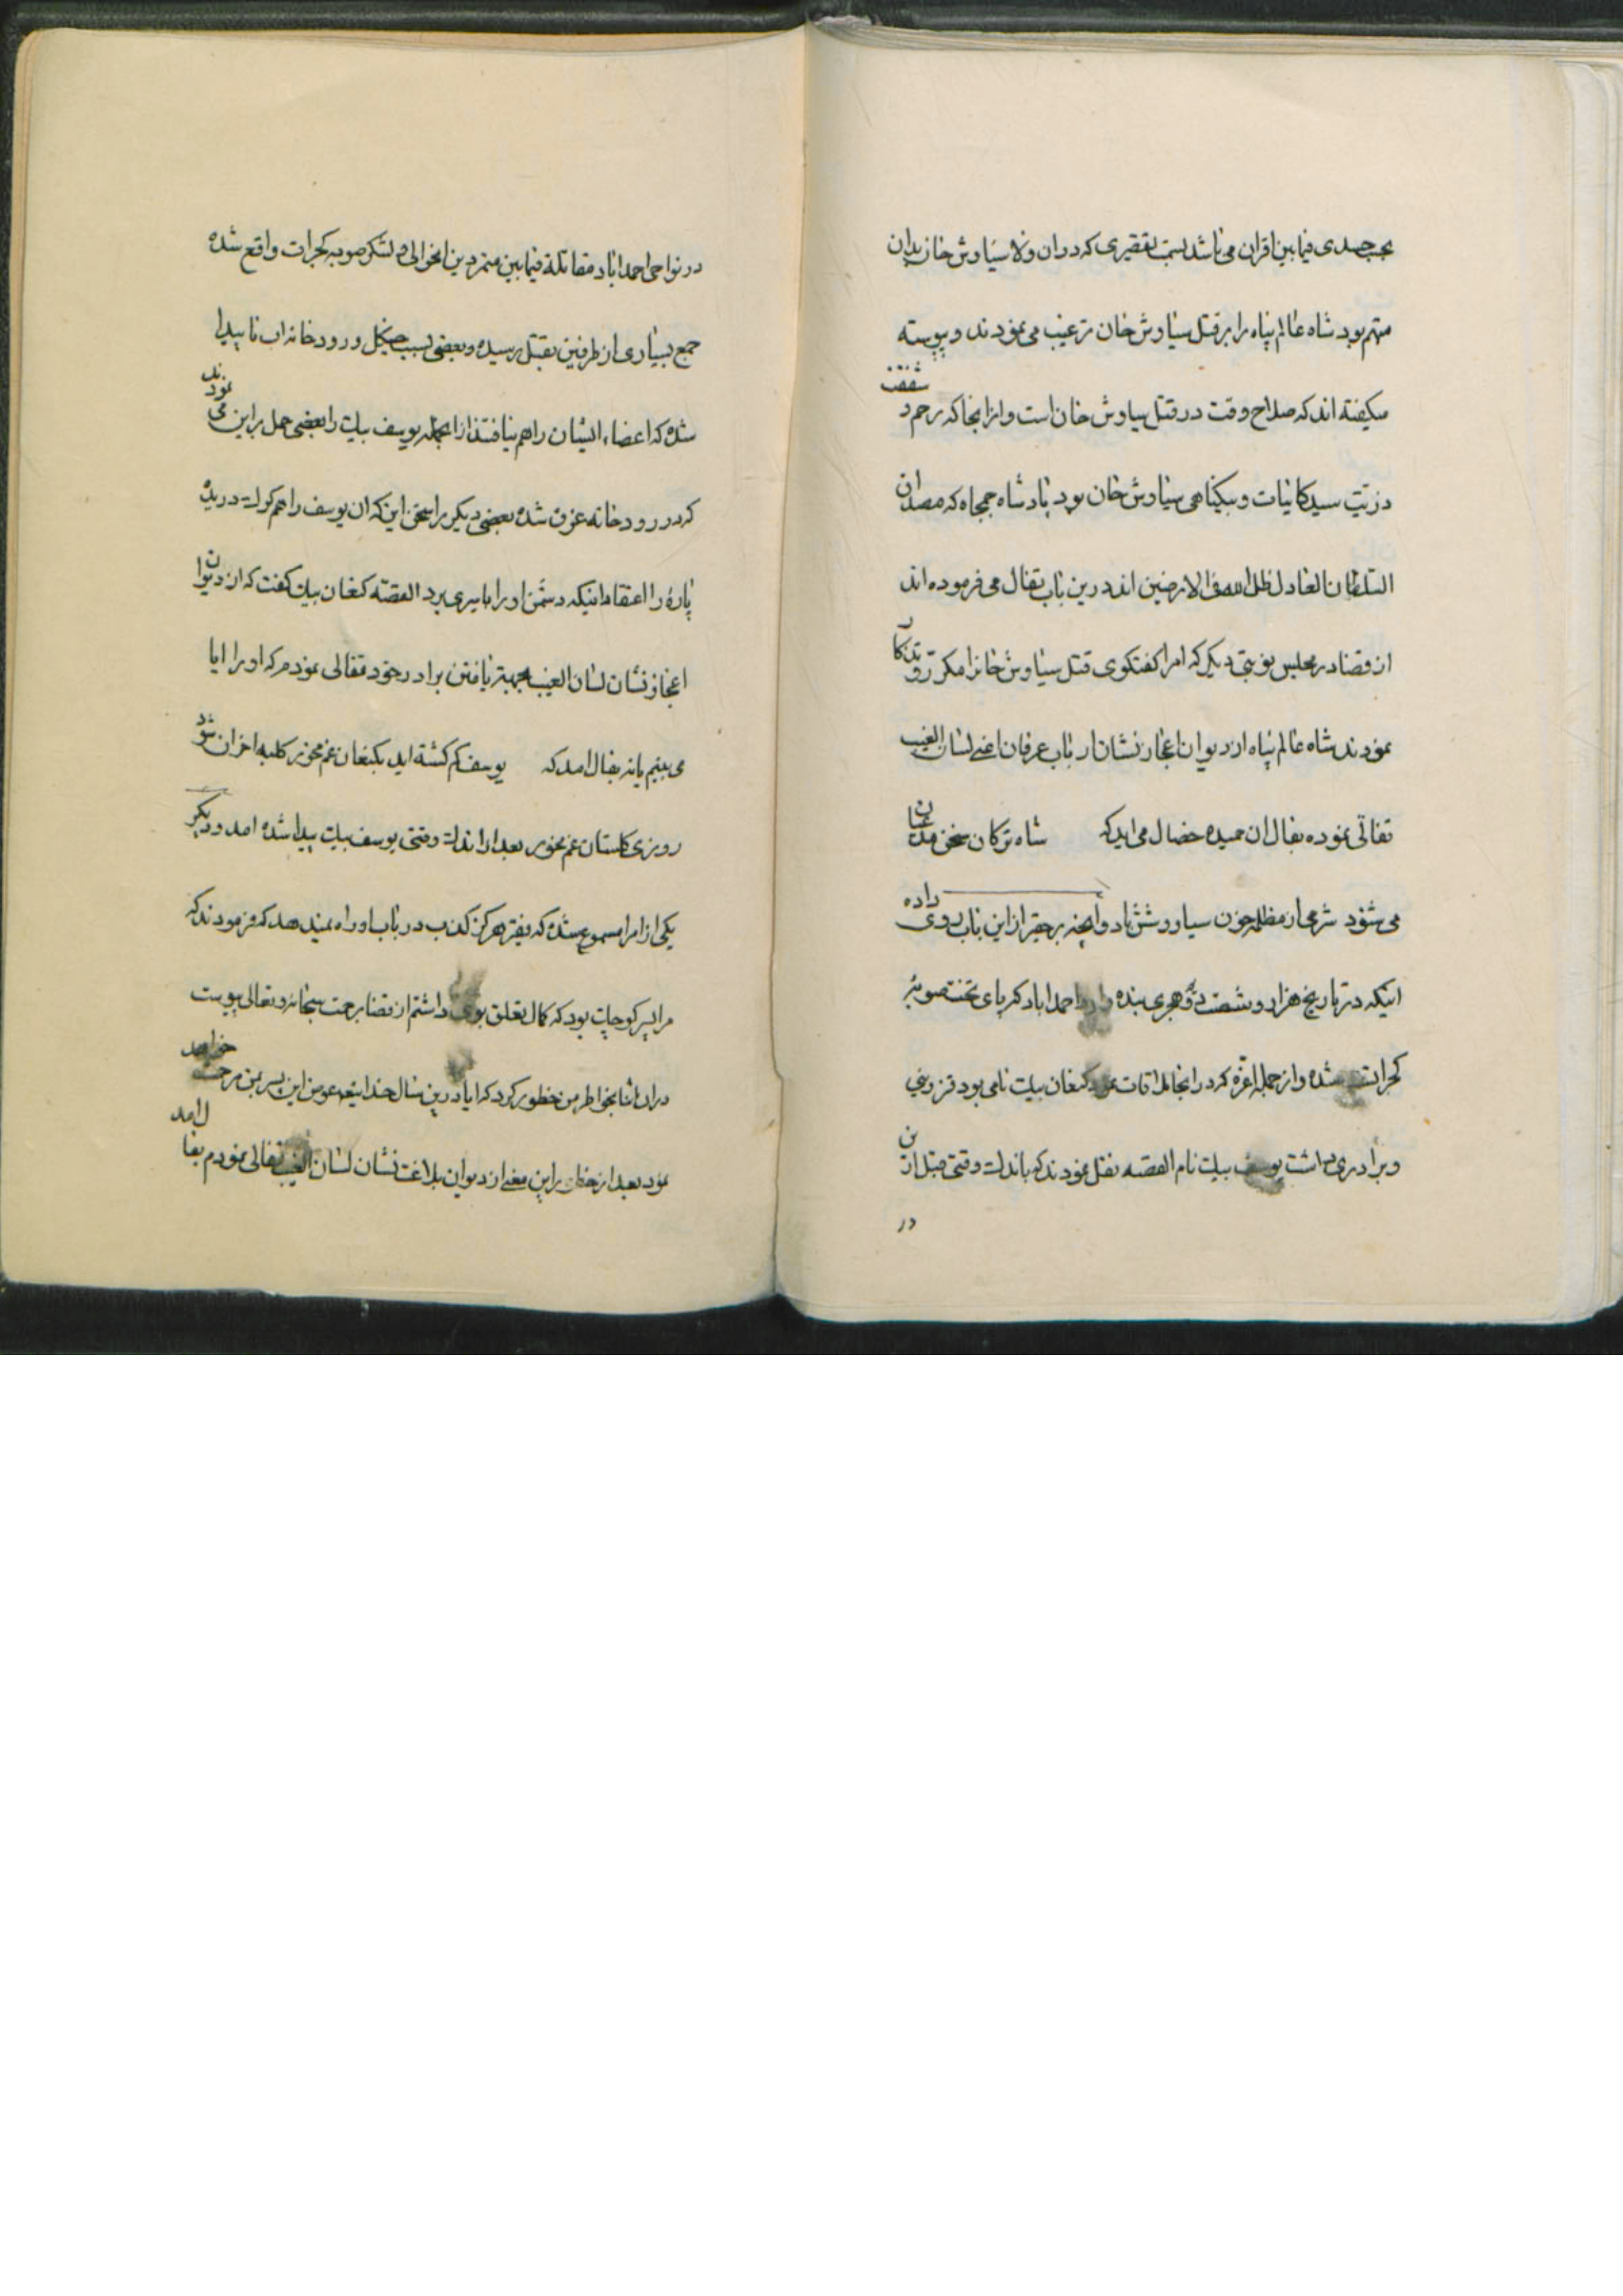 بحب حسدی فیمابین اقران می باشد بسبب تقصیری که دران ولا سیاوش خان بدان
متهم بود شاه عالم پناه را بر قتل سیاوش خان ترغیب می نمودند و پیوسته
میکفته اند که صلاح وقت در قتل سیاوش خان است و از انجا که رحم و شفقت
در سید کاینات و بیکناهی سیاوش خان بود پادشاه جمجاه که مصداق
السلطان العادل ظل الله فی الارضین اند درین باب تفال می فرموده اند
از قضا در مجلس نوبتی دیکر که امرا کفتکوی قتل سیاوش خانرا مکرر
نمودند شاه عالم پناه از دیوان اعجاز نشان ارباب عرفان اعنی لسان الغیب
تفالی نموده بفال ان حمیده خصال می اید که شاه ترکان سخن مدعیان
می شنود شرمی از مظلمه خون سیاووشش باد و انچه بر حقیر از این باب روی داده
اینکه در تاریخ هزار و شصت و دو هجری بنده وارد احمداباد که پای تخت صوبه
کجراتست شده و از جمله اعزه که در انجا ملاقات نمود کنعان بیک نامی بود قزوینی
و برادری داشت یوسف بیک نام القصه نقل نمودند که باندک وقتی قبل از ین
در
در نواحی احمداباد مقاتله فیمابین متمردین انحوالی و لشکر صوبه کجرات واقع شده
جمع بسیاری از طرفین بقتل رسیده و بعضی بسبب جنکل و رودخانه اب ناپیدا
شده که اعضاء ایشان را هم نیافتند از انجمله یوسف بیک را بعضی حمل بر این می نمودند
که در رودخانه غرق شده بعضی دیکر را سخن این که ان یوسف را هم کرک دریده
پارهٔ را اعتقاد اینکه دشمن او را باسیری برد القصه کنعان بیک کفت که از دیوان
اعجاز نشان لسان الغیب بجهة یافتن برادر خود تفالی نمودم که او را ایا
می بینم یا نه بفال امد که یوسف کم کشته اید بکنعان غم مخور کلبه احزان شود
روزی کلستان غم مخور بعد از اندک وقتی یوسف بیک پیدا شده امد و دیکر
یکی از امرا مسموع شده که فقیر هرکز کذب در باب او راه نمیدهد که فرمودند که
مرا پسر کوچک بود که کمال تعلق بوی داشتم از قضا برحمت سبحانه و تعالی پیوست
دران اثنا بخواطر من خطور کرد که ایا درین سال خدایتعالی عوض این پسر بمن مرحمت خواهد
نمود بعد از خطور این معنی از دیوان بلاغت نشان لسان الغیب تفالی نمودم بفال امد